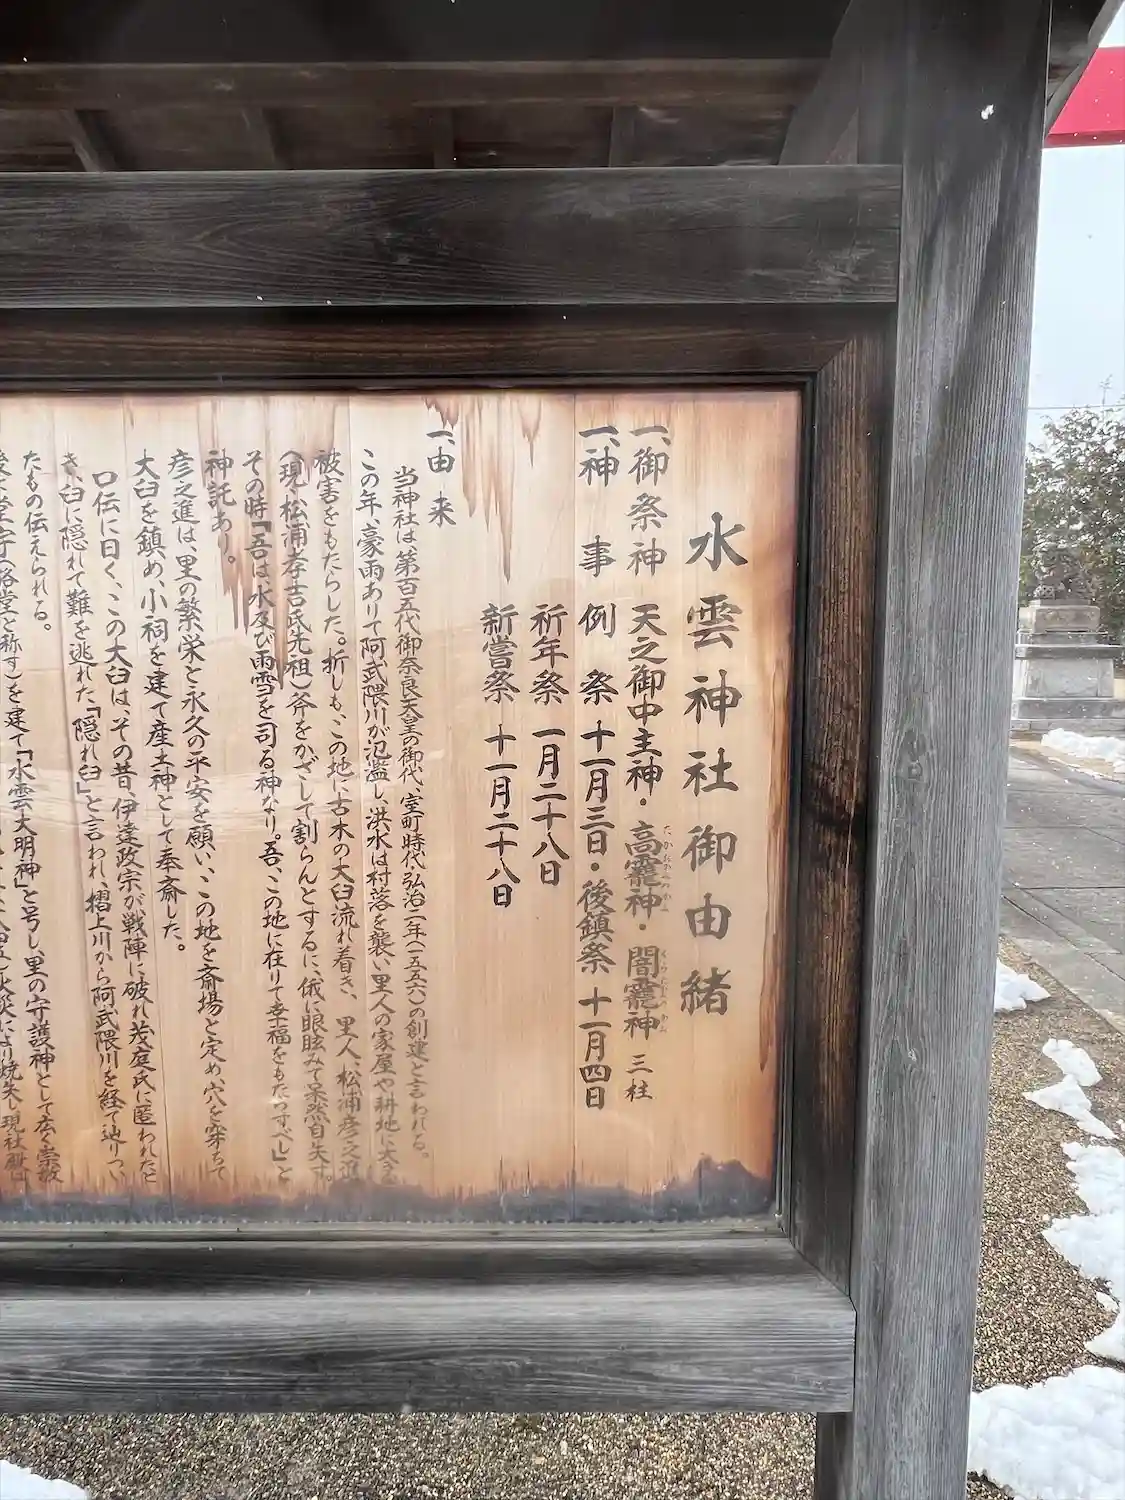 水雲神社御由緒
一、御祭神 天之御中主神・高龗神・闇龗神 三柱
一、神事 例祭 十一月三日・後鎮祭 十一月四日
祈年祭 一月二十八日
新嘗祭 十一月二十八日
一、由来
当神社は第百五代御奈良天皇の御代、室町時代弘治二年(一五五六)の創建と言われる。
この年、豪雨ありて阿武隈川が氾濫し、洪水は村落を襲い里人の家屋や耕地に大きな
被害をもたらした。折しも、この地に古木の大臼流れ着き、里人、松浦彦之進
(現、松浦孝吉氏先祖)斧をかざして割らんとするに、俄に眼眩みて呆然自失す。
その時「吾は、水及び雨雪を司る神なり。吾、この地に在りて幸福をもたらすべし」と
神託あり。
彦之進は、里の繁栄と永久の平安を願い、この地を斎場と定め、穴を穿ちて
大臼を鎮め、小祠を建て産土神として奉斎した。
口伝に曰く、この大臼は、その昔、伊達政宗が戦陣に破れ茂庭氏に匿われたと
き、臼に隠れて難を逃れた、「隠れ臼」と言われ、摺上川から阿武隈川を経て辿りつい
たもの伝えられる。
と称す)を建て「水雲大明神」と号し、里の守護神として広く崇敬
火災により焼失し、現社殿は